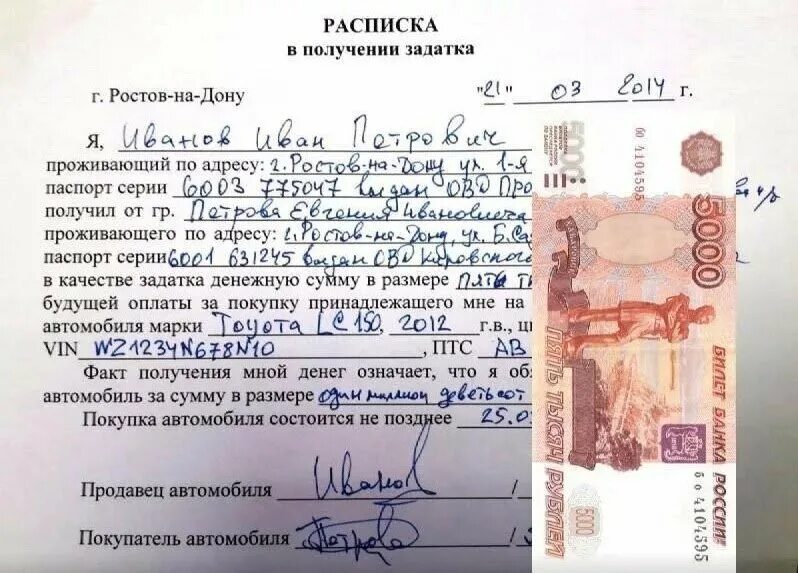 РАСПИСКА
в получении задатка
г. Ростов-на-Дону "21" 03 2014 г.
Я, Иванов Иван Петрович
проживающий по адресу: г.Ростов-на-Дону ул. 1-я
паспорт серии 6003 775047 выдан ОВД Про
получил от гр. Петрова Евгения Ивановича
проживающего по адресу: г.Ростов-на-Дону, ул. Б.Са
паспорт серии 6001 631245 выдан ОВД Кировского
в качестве задатка денежную сумму в размере Пять т
будущей оплаты за покупку принадлежащего мне на
автомобиля марки Toyota LC 150, 2012 г.в., ц
VIN WZ1234N678N10, ПТС АВ
Факт получения мной денег означает, что я об
автомобиль за сумму в размере один миллион девятьсот
Покупка автомобиля состоится не позднее 25.0
Продавец автомобиля Иванов /
Покупатель автомобиля Петрова /
5000
бо 4104595
5000
БИЛЕТ БАНКА РОССИИ
ПЯТЬ ТЫСЯЧ РУБЛЕЙ
5000
бо 4104595